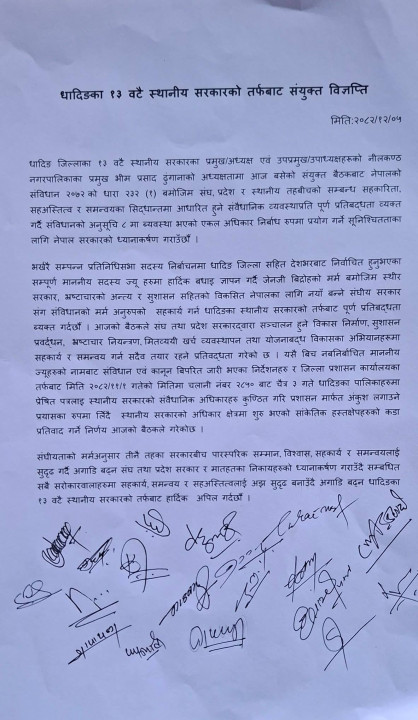 धादिङका १३ वटै स्थानीय सरकारको तर्फबाट संयुक्त विज्ञप्ति
मिति:२०८२/१२/०५
धादिङ जिल्लाका १३ वटै स्थानीय सरकारका प्रमुख/अध्यक्ष एवं उपप्रमुख/उपाध्यक्षहरूको नीलकण्ठ
नगरपालिकाका प्रमुख भीम प्रसाद ढुंगानाको अध्यक्षतामा आज बसेको संयुक्त बैठकबाट नेपालको
संविधान २०७२ को धारा २३२ (१) बमोजिम संघ, प्रदेश र स्थानीय तहबीचको सम्बन्ध सहकारिता,
सहअस्तित्व र समन्वयका सिद्धान्तमा आधारित हुने संवैधानिक व्यवस्थाप्रति पूर्ण प्रतिबद्धता व्यक्त
गर्दै संविधानको अनुसूचि ८ मा व्यवस्था भएको एकल अधिकार निर्बाध रुपमा प्रयोग गर्ने सुनिश्चितताका
लागि नेपाल सरकारको ध्यानाकर्षण गराउँछौं ।
भर्खरै सम्पन्न प्रतिनिधिसभा सदस्य निर्वाचनमा धादिङ जिल्ला सहित देशभरबाट निर्वाचित हुनुभएका
सम्पूर्ण माननीय सदस्य ज्यू हरुमा हार्दिक बधाइ ज्ञापन गर्दै जेनजी बिद्रोहको मर्म बमोजिम स्थीर
सरकार, भ्रष्टाचारको अन्त्य र सुशासन सहितको विकसित नेपालका लागि नयाँ बन्ने संघीय सरकार
संग संविधानको मर्म अनुरुपको सहकार्य गर्न धादिङका स्थानीय सरकारको तर्फबाट पूर्ण प्रतिबद्धता
ब्यक्त गर्दछौं । आजको बैठकले संघ तथा प्रदेश सरकारद्वारा सञ्चालन हुने विकास निर्माण, सुशासन
प्रवर्द्धन, भ्रष्टाचार नियन्त्रण, मितव्ययी खर्च व्यवस्थापन तथा योजनाबद्ध विकासका अभियानहरूमा
सहकार्य र समन्वय गर्न सदैव तयार रहने प्रतिवद्धता गरेको छ । यसै बिच नबनिर्बाचित माननीय
ज्यूहरुको नामबाट संविधान एवं कानून बिपरित जारी भएका निर्देशनहरु र जिल्ला प्रशासन कार्यालयका
तर्फबाट मिति २०८२/११/१ गतेको मितिमा चलानी नंबर २८५० बाट चैत्र ३ गते धादिङका पालिकाहरुमा
प्रेषित पत्रलाइ स्थानीय सरकारको संवैधानिक अधिकारहरु कुण्ठित गरि प्रशासन मार्फत अंकुश लगाउने
प्रयासका रुपमा लिँदै स्थानीय सरकारको अधिकार क्षेत्रमा शुरु भएको सांकेतिक हस्तक्षेपहरुको कडा
प्रतिवाद गर्ने निर्णय आजको बैठकले गरेकोछ ।
संघीयताको मर्मअनुसार तीनै तहका सरकारबीच पारस्परिक सम्मान, विश्वास, सहकार्य र समन्वयलाई
सुदृढ गर्दै अगाडि बढ्न संघ तथा प्रदेश सरकार र मातहतका निकायहरुको ध्यानाकर्षण गराउँदै सम्बन्धित
सबै सरोकारवालाहरुमा सहकार्य, समन्वय र सहअस्तित्वलाई अझ सुदृढ बनाउँदै अगाडि बढ्न धादिङका
१३ वटै स्थानीय सरकारको तर्फबाट हार्दिक अपिल गर्दछौं ।